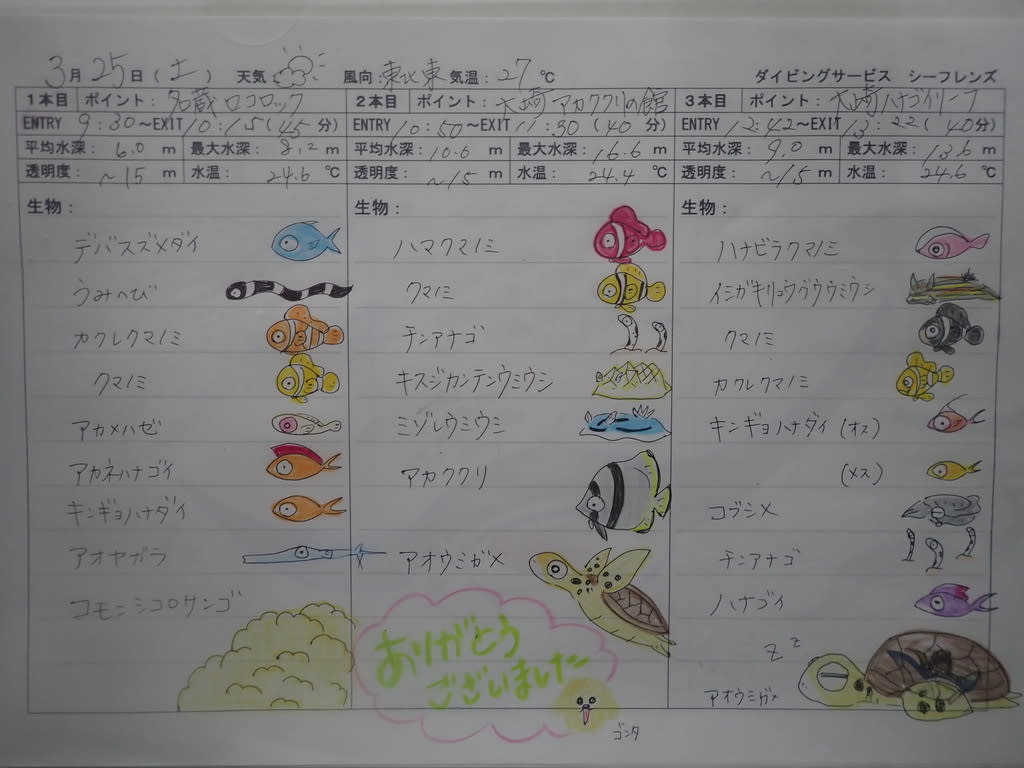 3月 25日(土) 天気 風向:東北東 気温:27℃ ダイビングサービス シーフレンズ
1本目 ポイント:名蔵ロコロック
ENTRY 9:30~EXIT 10:15(45分)
平均水深: 6.0 m 最大水深: 8.2 m
透明度: ~15 m 水温: 24.6 ℃
生物:
デバスズメダイ
うみへび
カクレクマノミ
クマノミ
アカメハゼ
アカネハナゴイ
キンギョハナダイ
アオヤガラ
コモンシコロサンゴ
2本目 ポイント:大崎アカククリの館
ENTRY 10:50~EXIT 11:30(40分)
平均水深: 10.6 m 最大水深: 16.6 m
透明度: ~15 m 水温: 24.4 ℃
生物:
ハマクマノミ
クマノミ
チンアナゴ
キスジカンテンウミウシ
ミゾレウミウシ
アカククリ
アオウミガメ
ありがとう
ございました
ゴンタ
3本目 ポイント:大崎ハナゴイリーフ
ENTRY 12:42~EXIT 13:22(40分)
平均水深: 9.0 m 最大水深: 13.6 m
透明度: ~15 m 水温: 24.6 ℃
生物:
ハナビラクマノミ
イシガキリュウグウウミウシ
クマノミ
カクレクマノミ
キンギョハナダイ(オス)
(メス)
コブシメ
チンアナゴ
ハナゴイ
Z Z
アオウミガメ